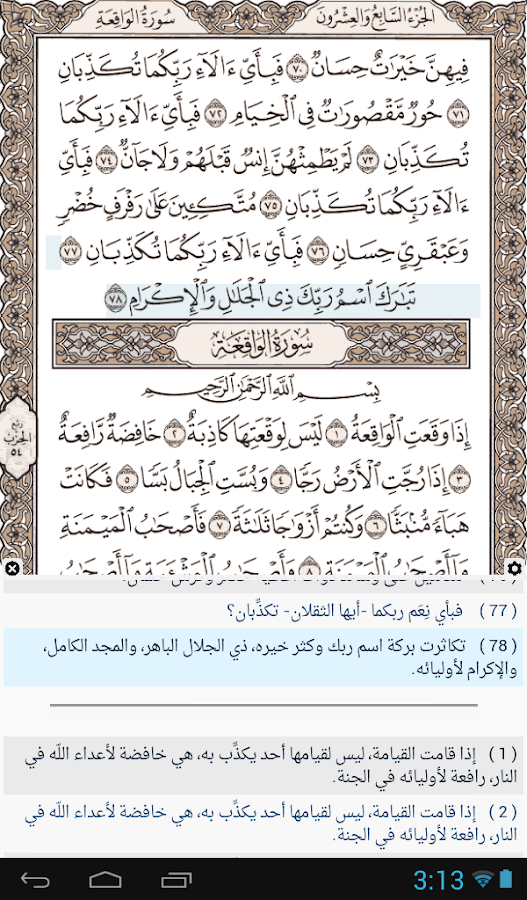 الجزء السابع والعشرون
سورة الواقعة
فِيهِنَّ خَيْرَٰتٌ حِسَانٌ ٧٠ فَبِأَيِّ ءَالَآءِ رَبِّكُمَا تُكَذِّبَانِ
٧١ حُورٌ مَّقْصُورَٰتٌ فِي ٱلْخِيَامِ ٧٢ فَبِأَيِّ ءَالَآءِ رَبِّكُمَا
تُكَذِّبَانِ ٧٣ لَمْ يَطْمِثْهُنَّ إِنسٌ قَبْلَهُمْ وَلَا جَآنٌّ ٧٤ فَبِأَيِّ
ءَالَآءِ رَبِّكُمَا تُكَذِّبَانِ ٧٥ مُتَّكِـِٔينَ عَلَىٰ رَفْرَفٍ خُضْرٍ
وَعَبْقَرِيٍّ حِسَانٍ ٧٦ فَبِأَيِّ ءَالَآءِ رَبِّكُمَا تُكَذِّبَانِ ٧٧
تَبَٰرَكَ ٱسْمُ رَبِّكَ ذِي ٱلْجَلَٰلِ وَٱلْإِكْرَامِ ٧٨
سُورَةُ الواقِعَة
بِسْمِ ٱللَّهِ ٱلرَّحْمَٰنِ ٱلرَّحِيمِ
إِذَا وَقَعَتِ ٱلْوَاقِعَةُ ١ لَيْسَ لِوَقْعَتِهَا كَاذِبَةٌ ٢ خَافِضَةٌ رَّافِعَةٌ
٣ إِذَا رُجَّتِ ٱلْأَرْضُ رَجًّا ٤ وَبُسَّتِ ٱلْجِبَالُ بَسًّا ٥ فَكَانَتْ
هَبَآءً مُّنۢبَثًّا ٦ وَكُنتُمْ أَزْوَٰجًا ثَلَٰثَةً ٧ فَأَصْحَٰبُ ٱلْمَيْمَنَةِ
مَآ أَصْحَٰبُ ٱلْمَيْمَنَةِ ٨ وَأَصْحَٰبُ ٱلْمَشْـَٔمَةِ مَآ أَصْحَٰبُ
ربع
الحزب
٥٤
( 77 ) فبأي نِعَم ربكما -أيها الثقلان- تكذِّبان؟
( 78 ) تكاثرت بركة اسم ربك وكثر خيره، ذي الجلال الباهر، والمجد الكامل،
والإكرام لأوليائه.
( 1 ) إذا قامت القيامة، ليس لقيامها أحد يكذِّب به، هي خافضة لأعداء الله في
النار، رافعة لأوليائه في الجنة.
( 2 ) إذا قامت القيامة، ليس لقيامها أحد يكذِّب به، هي خافضة لأعداء الله في
النار، رافعة لأوليائه في الجنة.
3:13